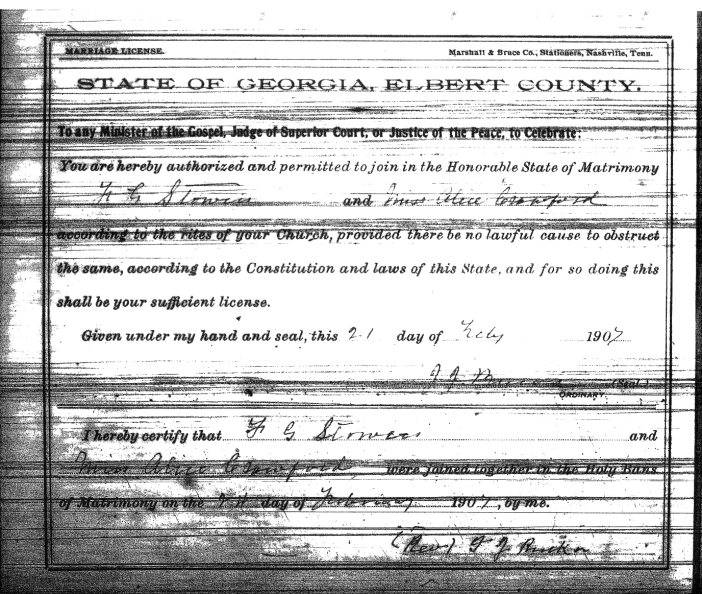 MARRIAGE LICENSE. Marshall & Bruce Co., Stationers, Nashville, Tenn.
STATE OF GEORGIA, ELBERT COUNTY.
To any Minister of the Gospel, Judge of Superior Court, or Justice of the Peace, to Celebrate:
You are hereby authorized and permitted to join in the Honorable State of Matrimony
F G Stowers and Miss Alice Crawford
according to the rites of your Church, provided there be no lawful cause to obstruct
the same, according to the Constitution and laws of this State, and for so doing this
shall be your sufficient license.
Given under my hand and seal, this 21 day of Feby 1907
(Seal.)
ORDINARY.
I hereby certify that F G Stowers and
Miss Alice Crawford were joined together in the Holy Bans
of Matrimony on the day of February 1907, by me.
(Rev) Rucker